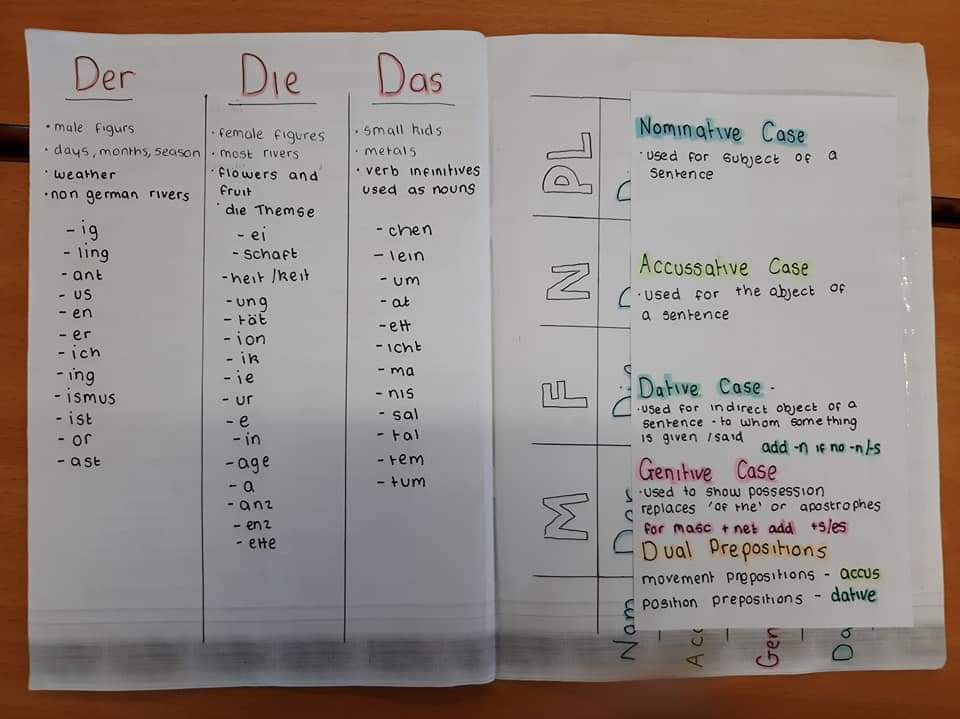 Der
• male figurs
• days, months, season
• weather
• non german rivers
- ig
- ling
- ant
- us
- en
- er
- ich
- ing
- ismus
- ist
- or
- ast
Die
• female figures
• most rivers
• flowers and
fruit
• die Themse
- ei
- schaft
- heit / keit
- ung
- tät
- ion
- ik
- ie
- ur
- e
- in
- age
- a
- anz
- enz
- ette
Das
• small kids
• metals
• verb infinitives
used as nouns
- chen
- lein
- um
- at
- ett
- icht
- ma
- nis
- sal
- tal
- tem
- tum
PL
N
F
M
Nom
Gen
Nominative Case
• used for subject of a
sentence
Accussative Case
• used for the object of
a sentence
Dative Case -
• used for indirect object of a
sentence - to whom something
is given / said
add -n if no -n/-s
Genitive Case
• used to show possession
replaces 'of the' or apostrophes
for masc + net add +s/es
Dual Prepositions
movement prepositions - accus
position prepositions - dative